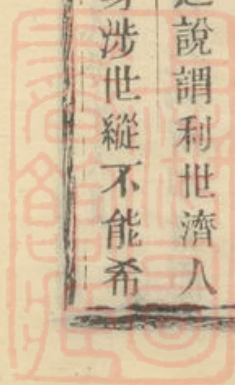 說謂利世濟人
涉世縱不能希